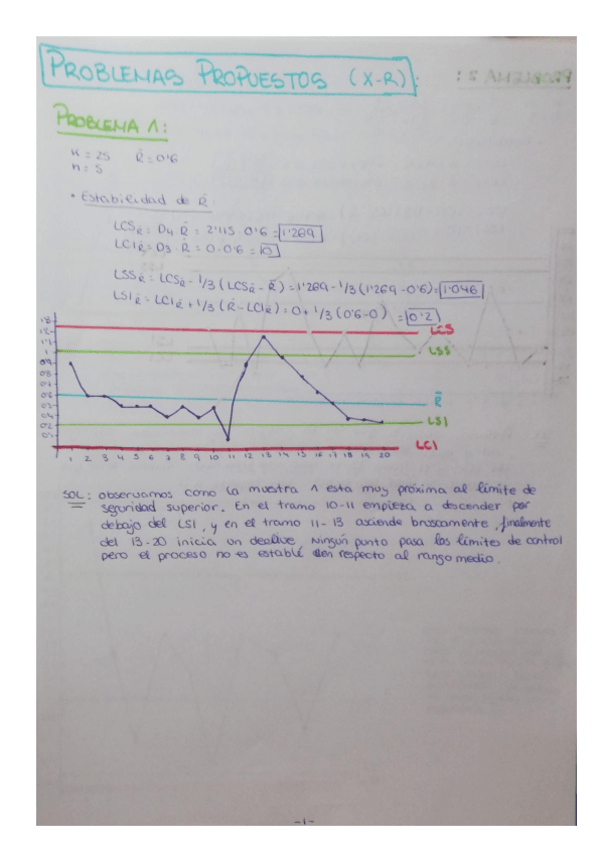 PROBLEMAS PROPUESTOS (X-R):
PROBLEMA 1:
K = 25 R̄ = 0'6
n = 5
• Estabilidad de R̄:
LCS R̄ = D4 R̄ = 2'115 · 0'6 = 1'269
LCI R̄ = D3 · R̄ = 0 · 0'6 = 0
LSS R̄ = LCS R̄ - 1/3 (LCS R̄ - R̄) = 1'269 - 1/3 (1'269 - 0'6) = 1'046
LSI R̄ = LCI R̄ + 1/3 (R̄ - LCI R̄) = 0 + 1/3 (0'6 - 0) = 0'2
LCS
LSS
R̄
LSI
LCI
1 2 3 4 5 6 7 8 9 10 11 12 13 14 15 16 17 18 19 20
SOL: observamos como la muestra 1 esta muy próxima al límite de
seguridad superior. En el tramo 10-11 empieza a descender por
debajo del LSI, y en el tramo 11-13 asciende bruscamente, finalmente
del 13-20 inicia un declive. Ningún punto pasa los límites de control
pero el proceso no es estable con respecto al rango medio.
-1-